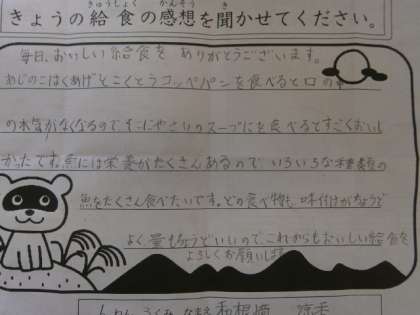 きょうの給食の感想を聞かせてください。
きゅうしょく かんそう き
毎日、おいしい給食を ありがとうございます。
あじのこはくあげ そこくとうコッペパンを食べると口の
の水気がなくなるので、そこにやさいのスープにを食べるとすごくおいし
かったです。魚には栄養がたくさんあるので、いろいろな種類の
魚をたくさん食べたいです。どの食べ物も味付けがちょうど
よく、量もちょうどいいので、これからもおいしい給食を
よろしくお願いします